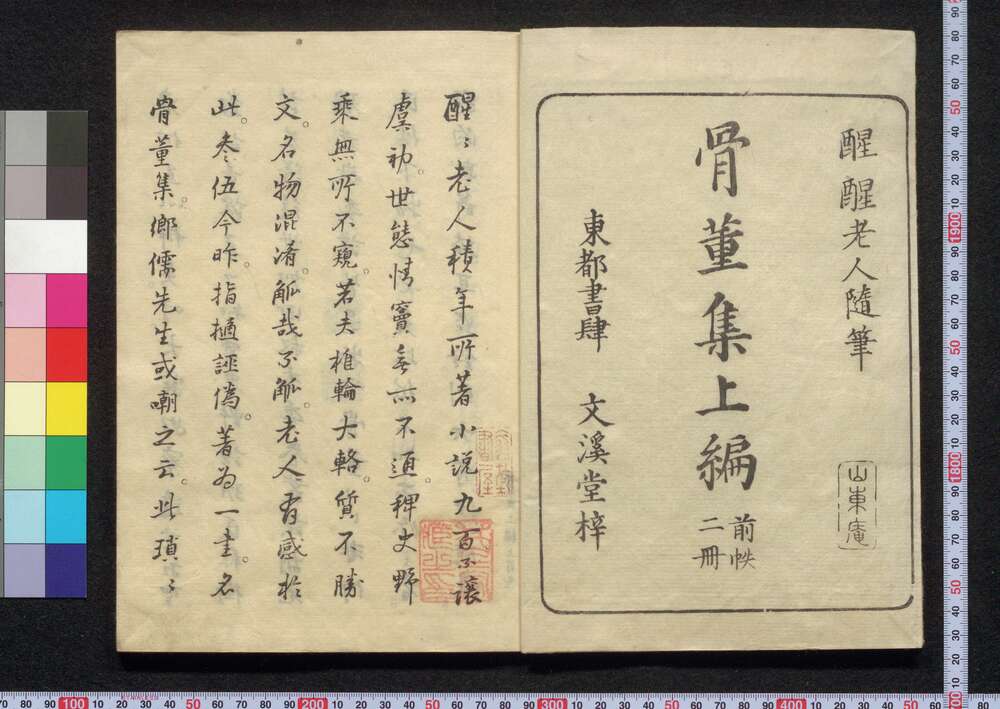 醒醒老人隨筆
山東庵
骨董集上編
前帙
二冊
東都書肆 文溪堂梓
醒〻老人積年所著小說九百不讓
虞初。世態情竇無所不通。稗史野
乘無所不窺。若夫椎輪大輅。質不勝
文。名物混淆。觚哉不觚。老人有感於
此。叄伍今昨。指擿誣偽。著為一書。名
骨董集。鄉儒先生或嘲之云。此瑣〻